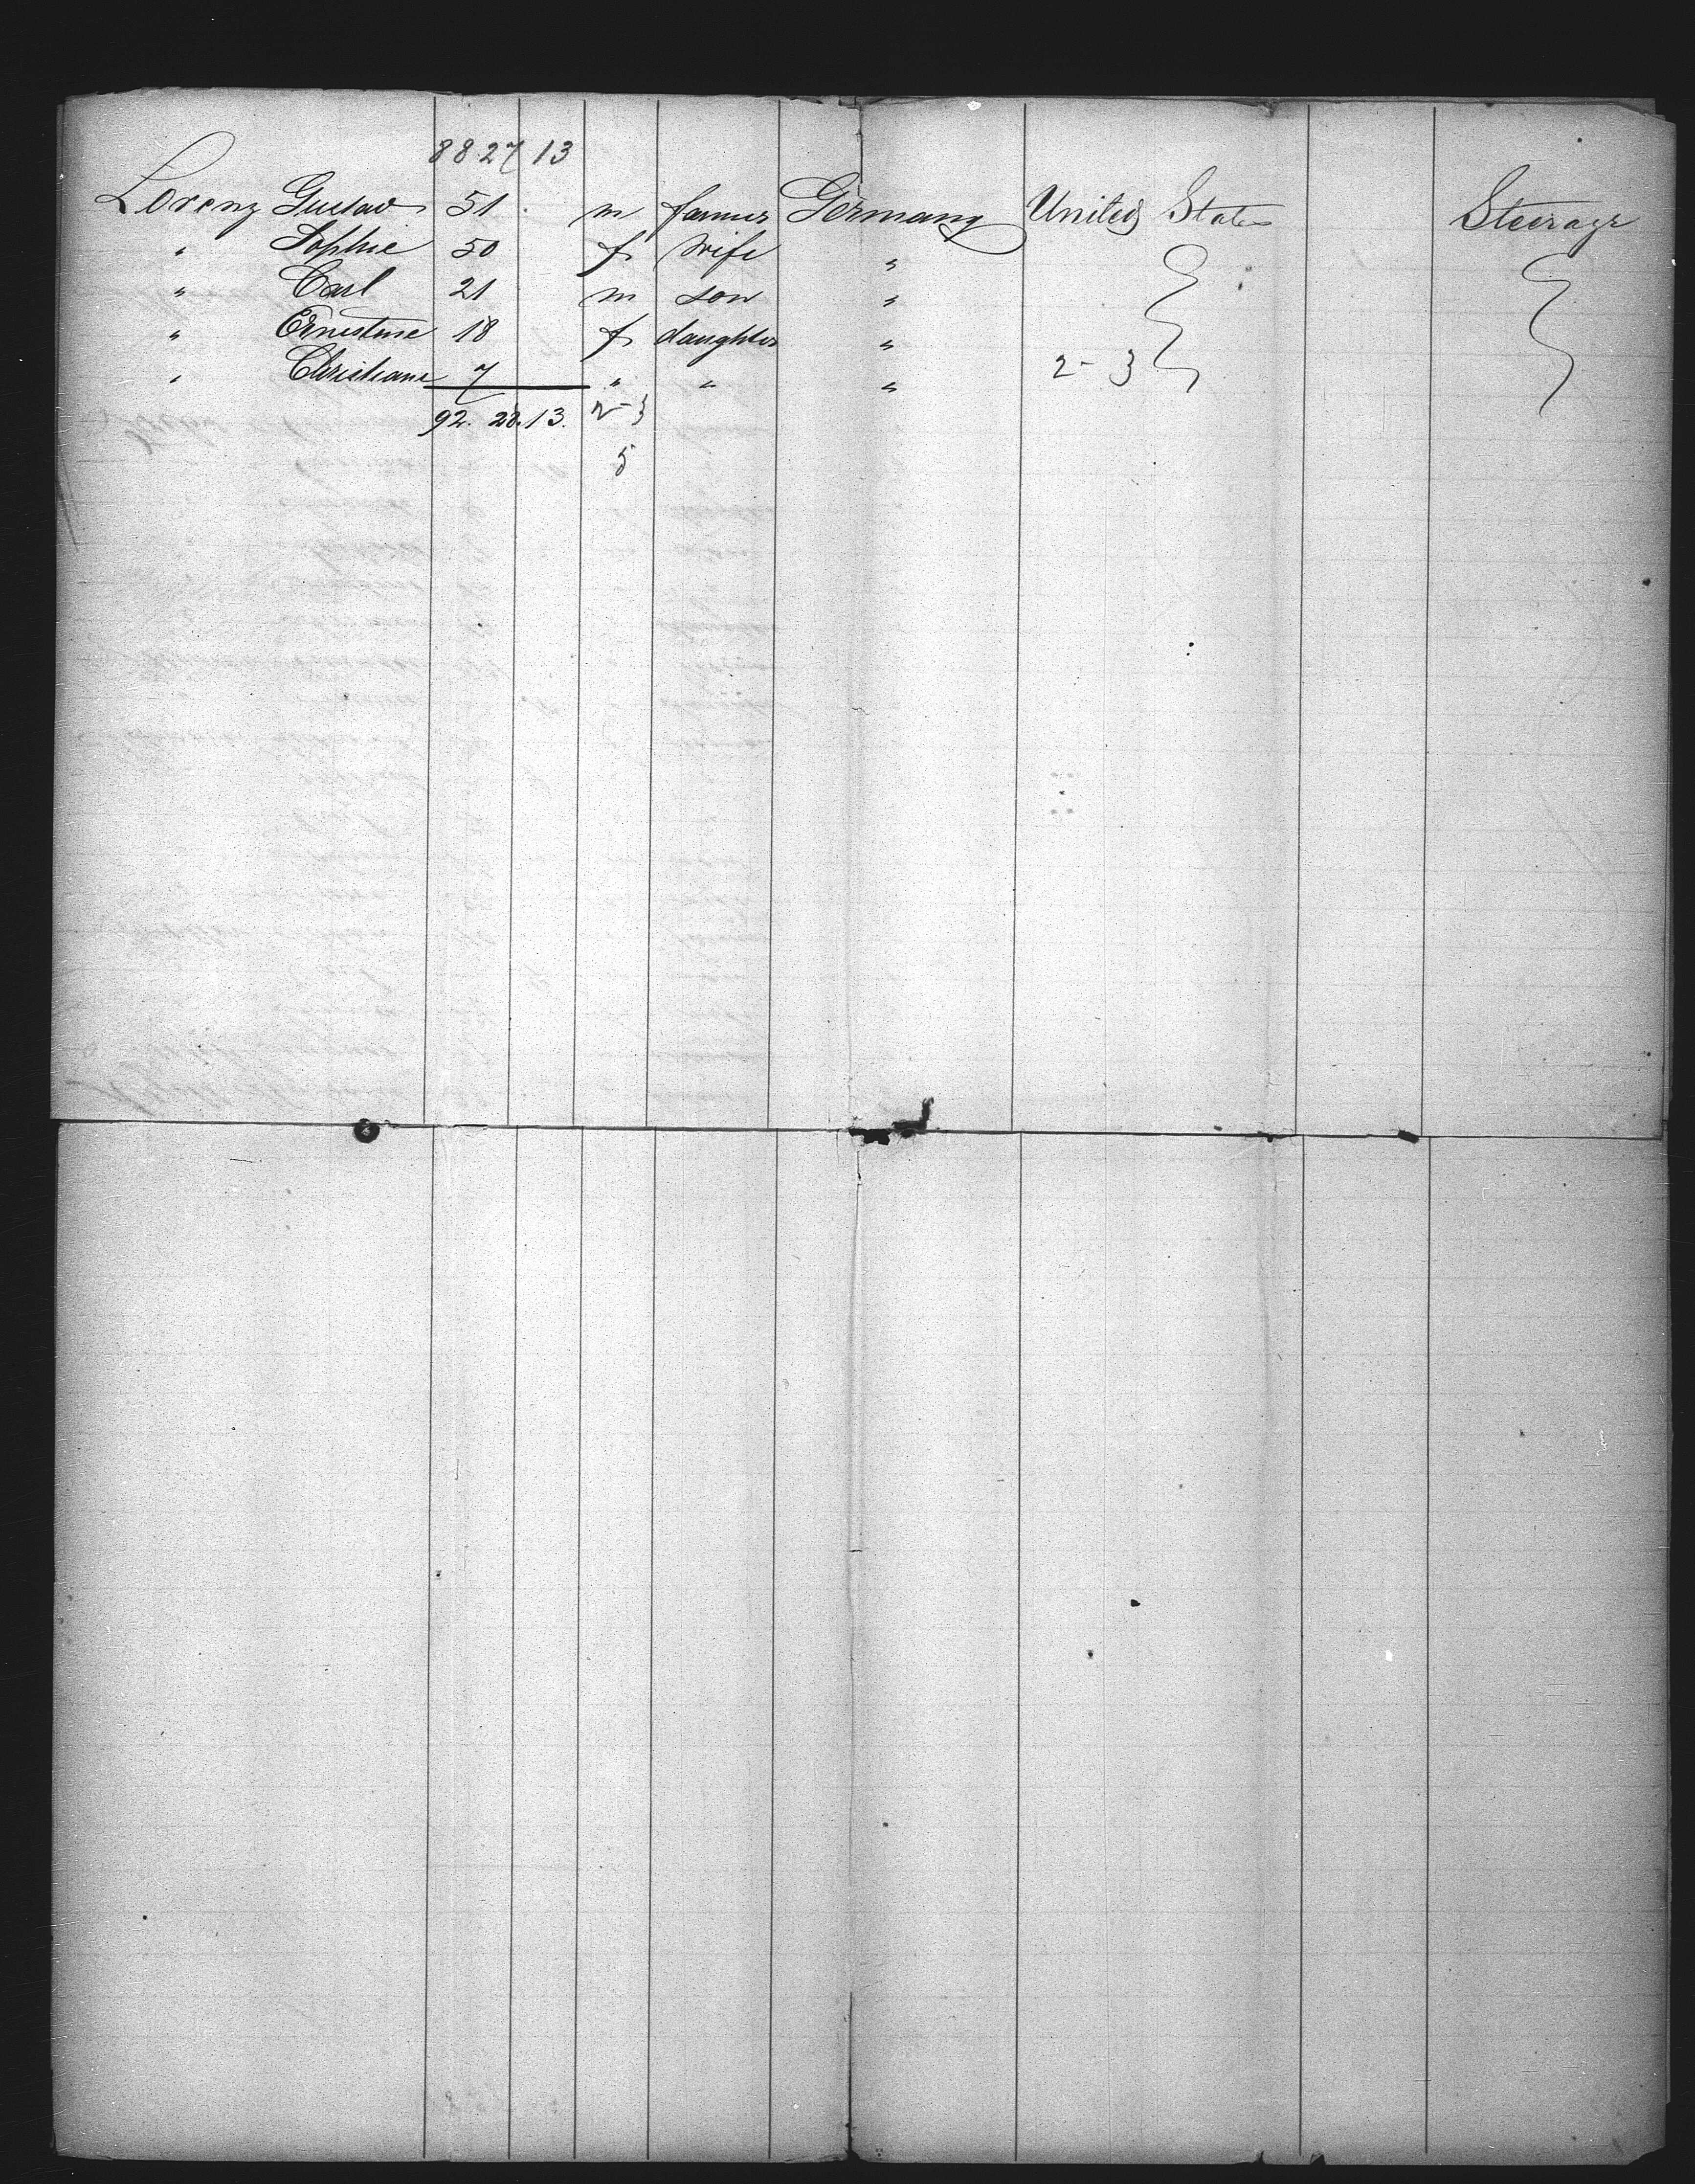 88. 27 13
Lorenz Gustav 51 m farmer Germany United States Steerage
" Sophie 50 f wife "
" Carl 21 m son "
" Ernestine 18 f daughter "
" Christiane 7 " " " 2-3
92. 28. 13. 2-3
5